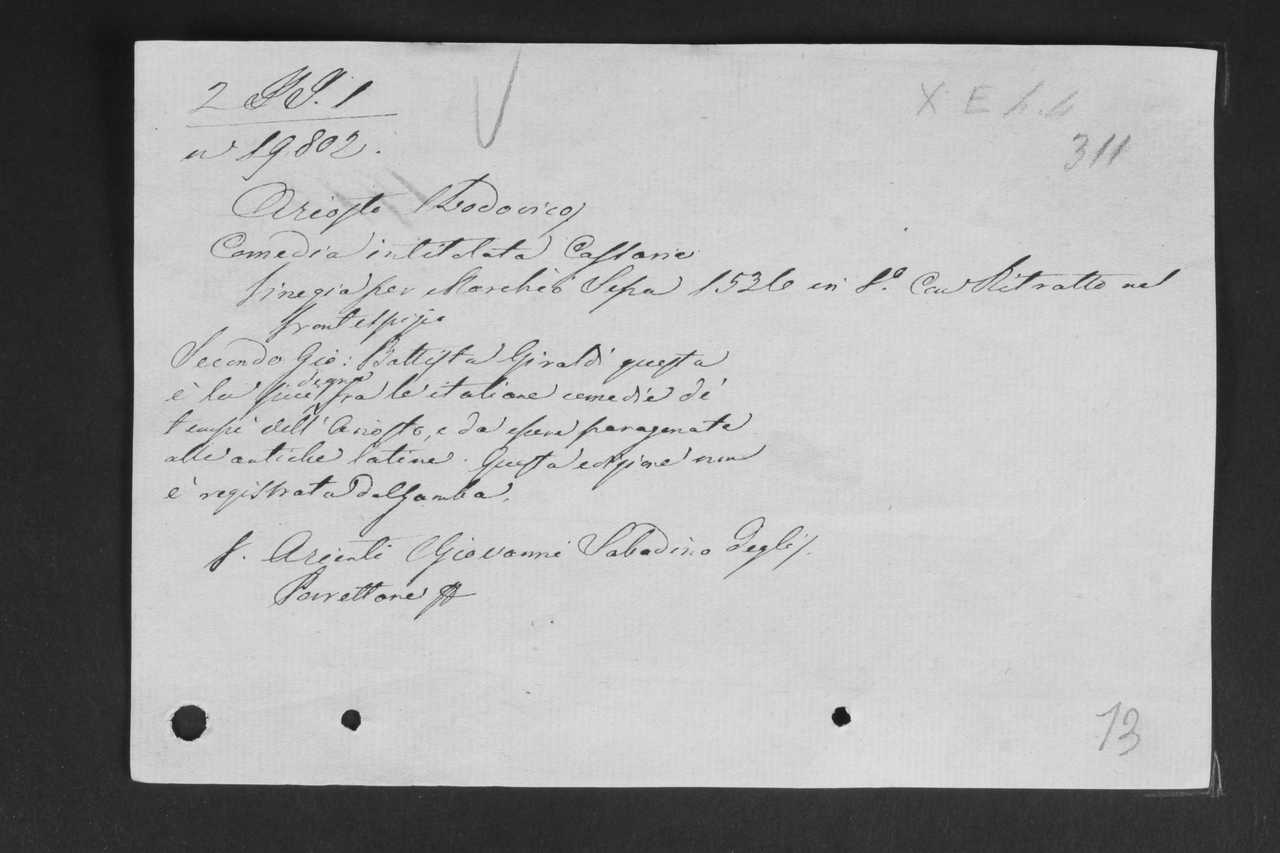 2 1
n 19802.
X E 4.4
311
Ariosto (Lodovico)
Comedia intitolata Cassaria
Vinegia per Marchiò Sessa 1536 in 8.° Con Ritratto nel
frontespizio
Secondo Gio: Battista Giraldi questa
è la piu degna fra le italiane comedie de'
tempi dell' Ariosto, e da essere paragonata
alle antiche latine. Questa edizione non
è registrata dal Gamba.
Arienti (Giovanni Sabadino degli).
Porrettane
13